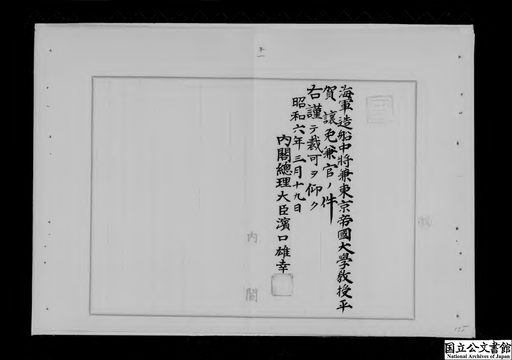 海軍造船中將兼東京帝國大學教授平
賀讓免兼官ノ件
右謹テ裁可ヲ仰ク
昭和六年三月十九日
內閣總理大臣濱口雄幸
內閣
国立公文書館
National Archives of Japan